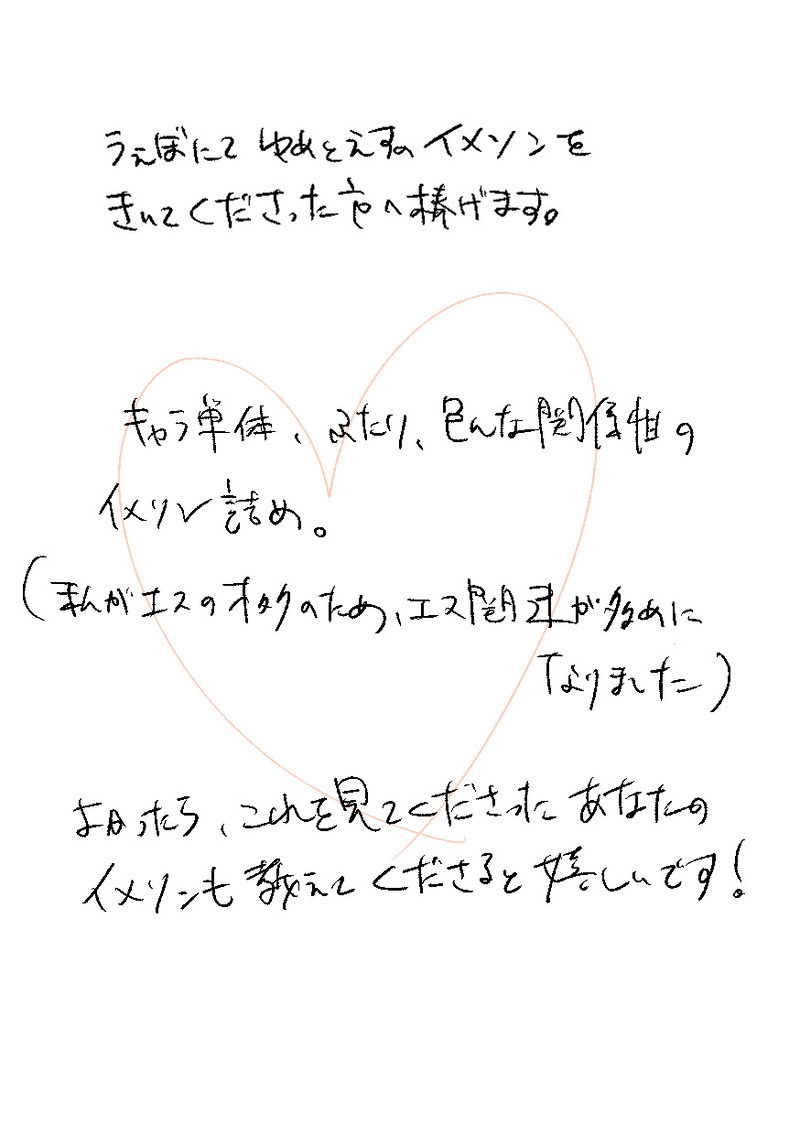 うぇぼにて ゆめとえすの イメソンを
きいてくださった方へ捧げます。
キャラ単体、ふたり、色んな関係性の
イメソン詰め。
(私がエスのオタクのため、エス関連が多めに
なりました)
よかったら、これを見てくださった あなたの
イメソンも教えてくださると嬉しいです!